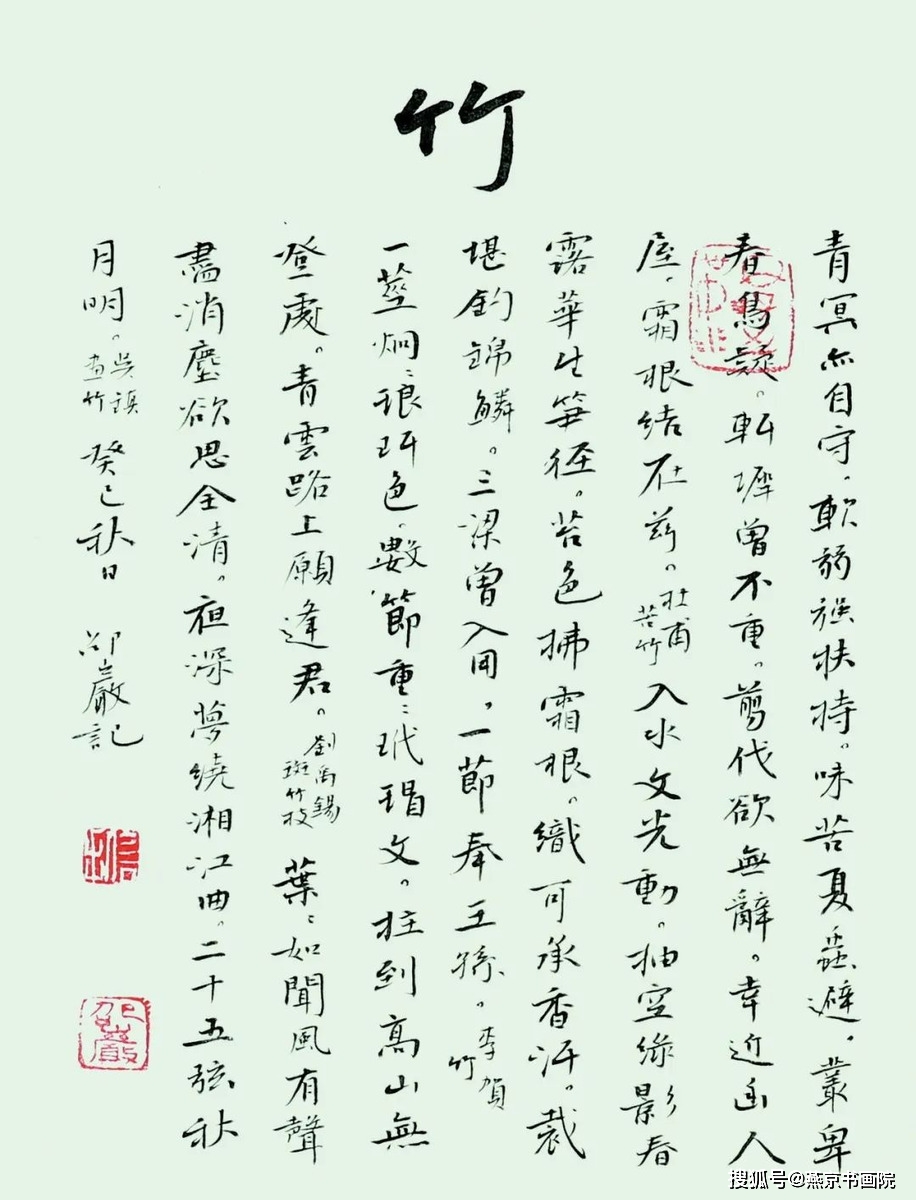 竹
青冥亦自守。軟弱强扶持。味苦夏蟲避。叢卑
春鳥疑。軒墀曾不重。剪伐欲無辭。幸近幽人
屋。霜根結在兹。杜甫苦竹 入水文光動。抽空綠影春
露華生筍徑。苔色拂霜根。織可承香汗。裁
堪釣錦鱗。三梁曾入用，一節奉王孫。李賀竹
一莖炯〻琅玕色。數節重〻玳瑁文。拄到高山無
登處。青雲路上願逢君。劉禹錫斑竹枝 葉〻如聞風有聲
盡消塵欲思全清。夜深夢繞湘江曲。二十五弦秋
月明。吳鎮畫竹 癸巳秋日 邵巖記
邵巖
搜狐号@燕京书画院